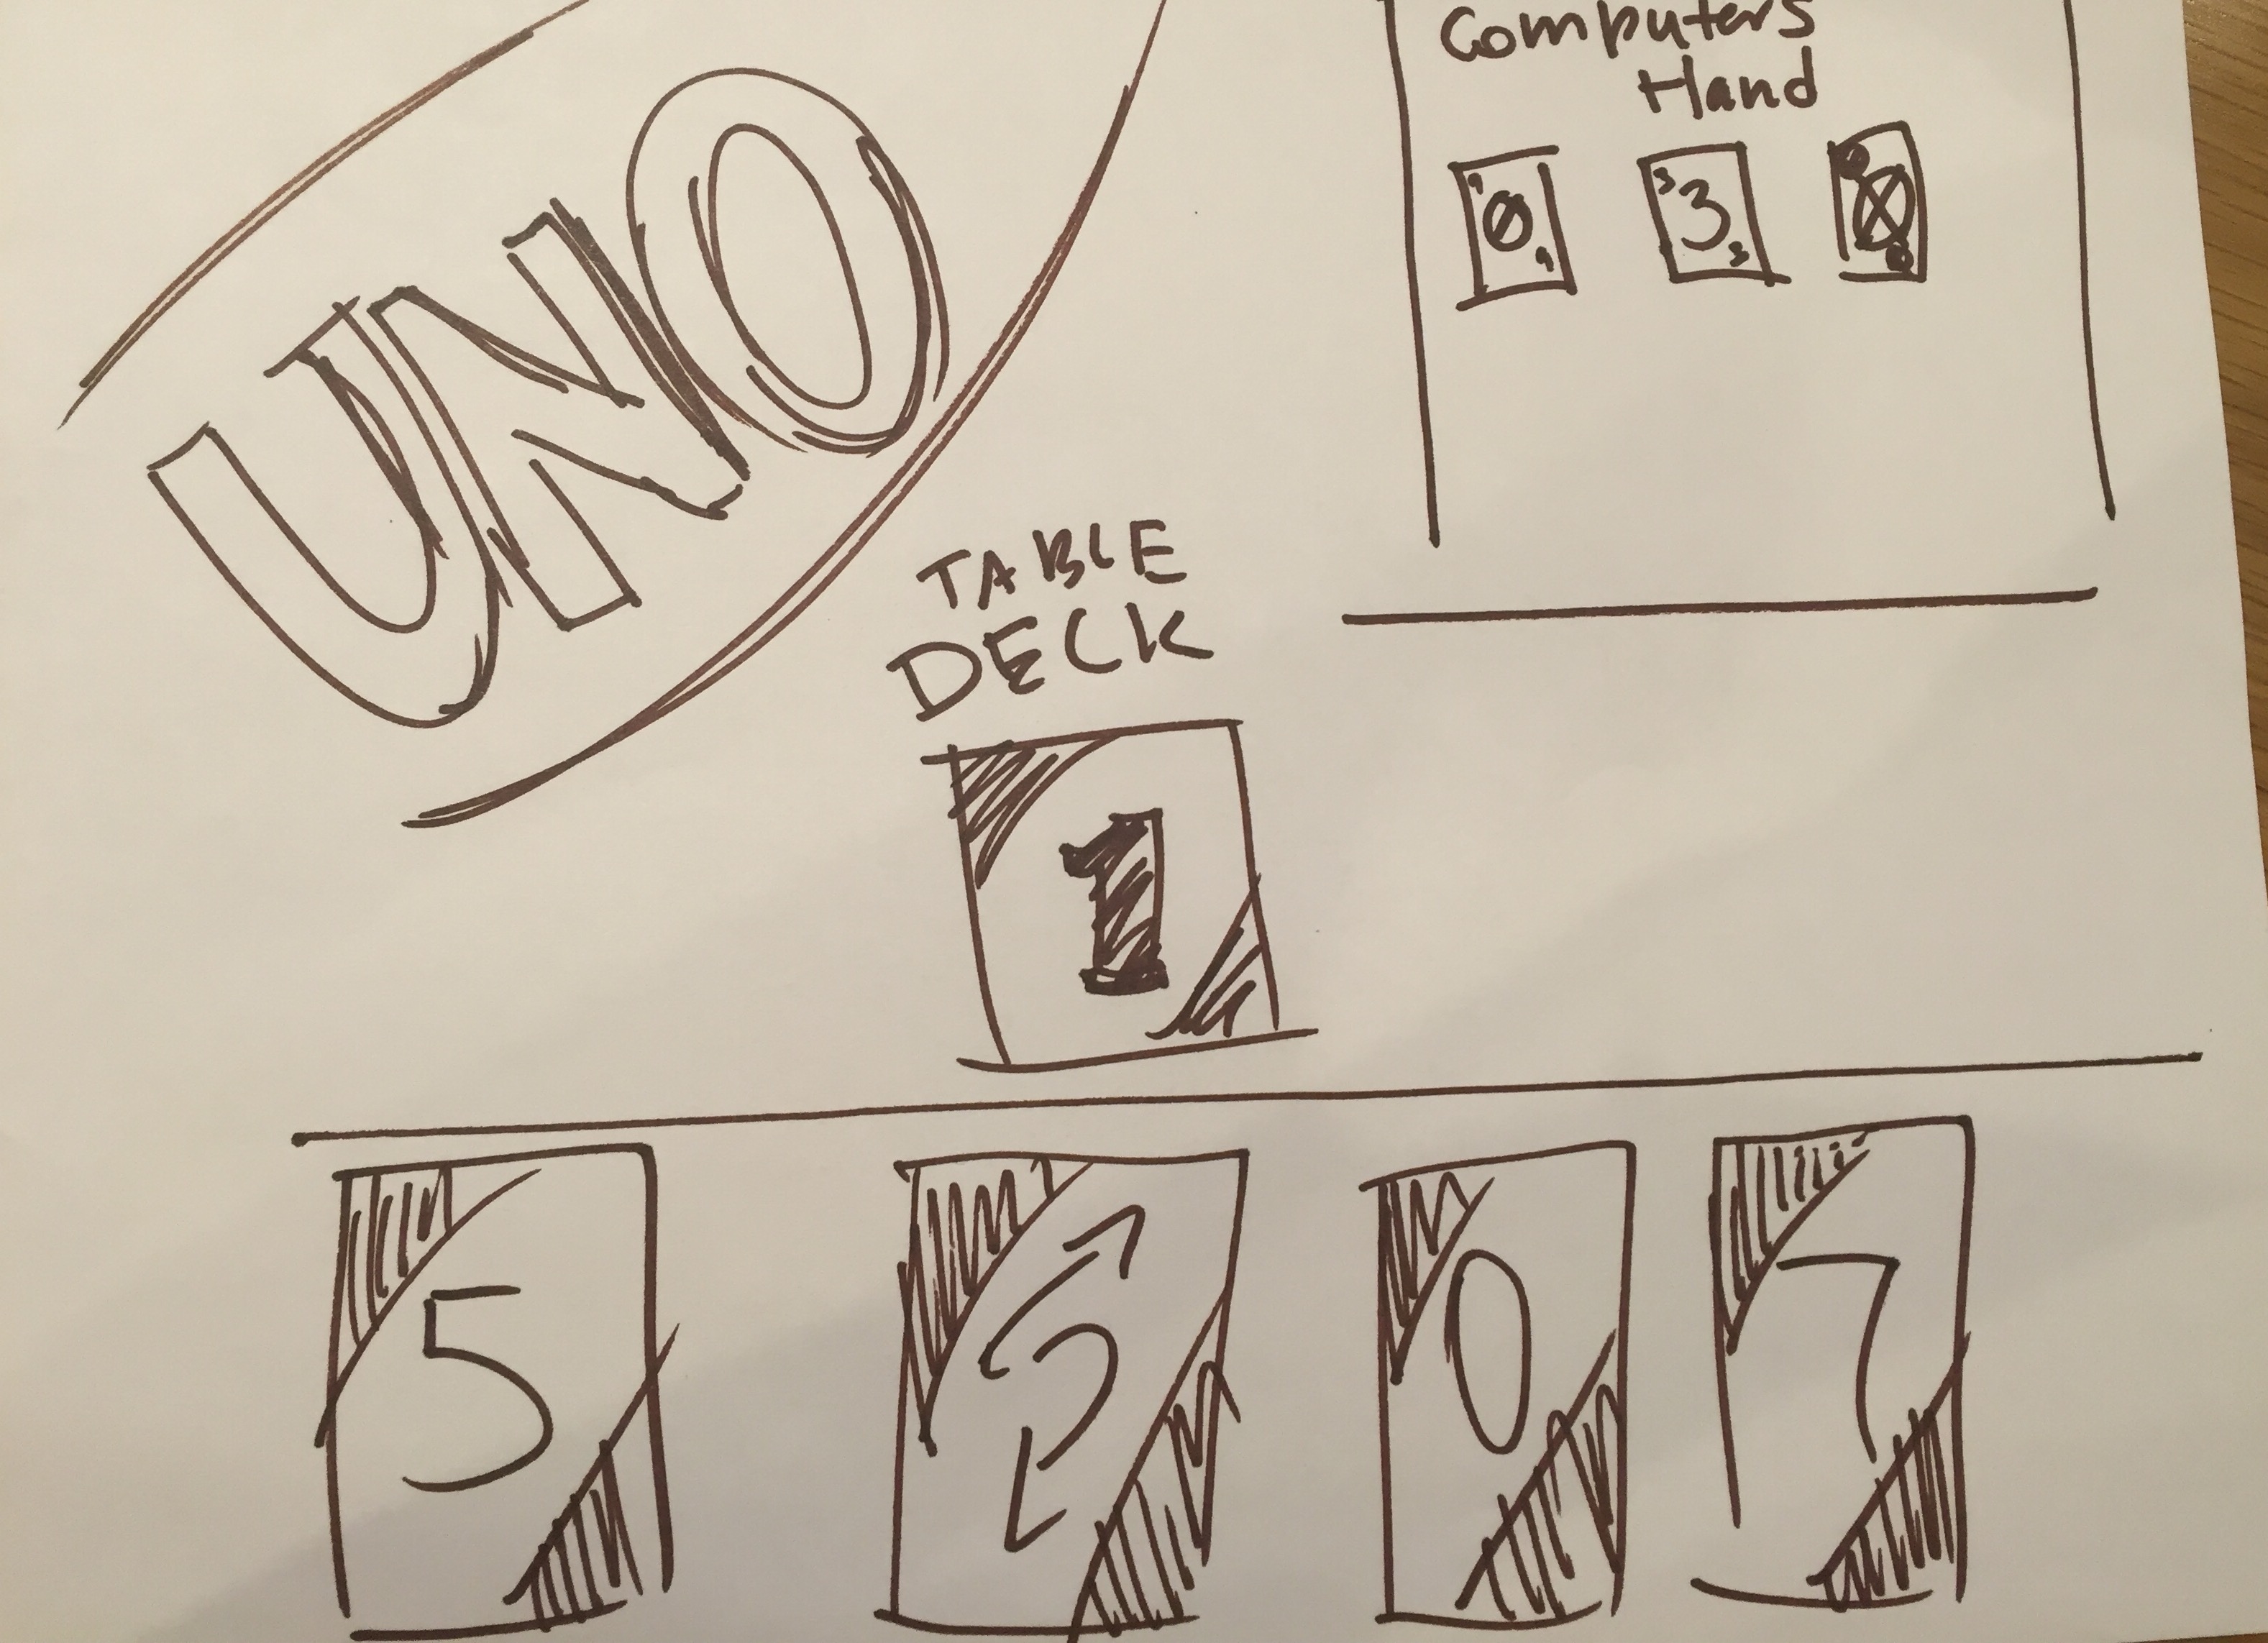 UNO
Computers
Hand
3 3 3
TABLE
DECK
1
5 0 7